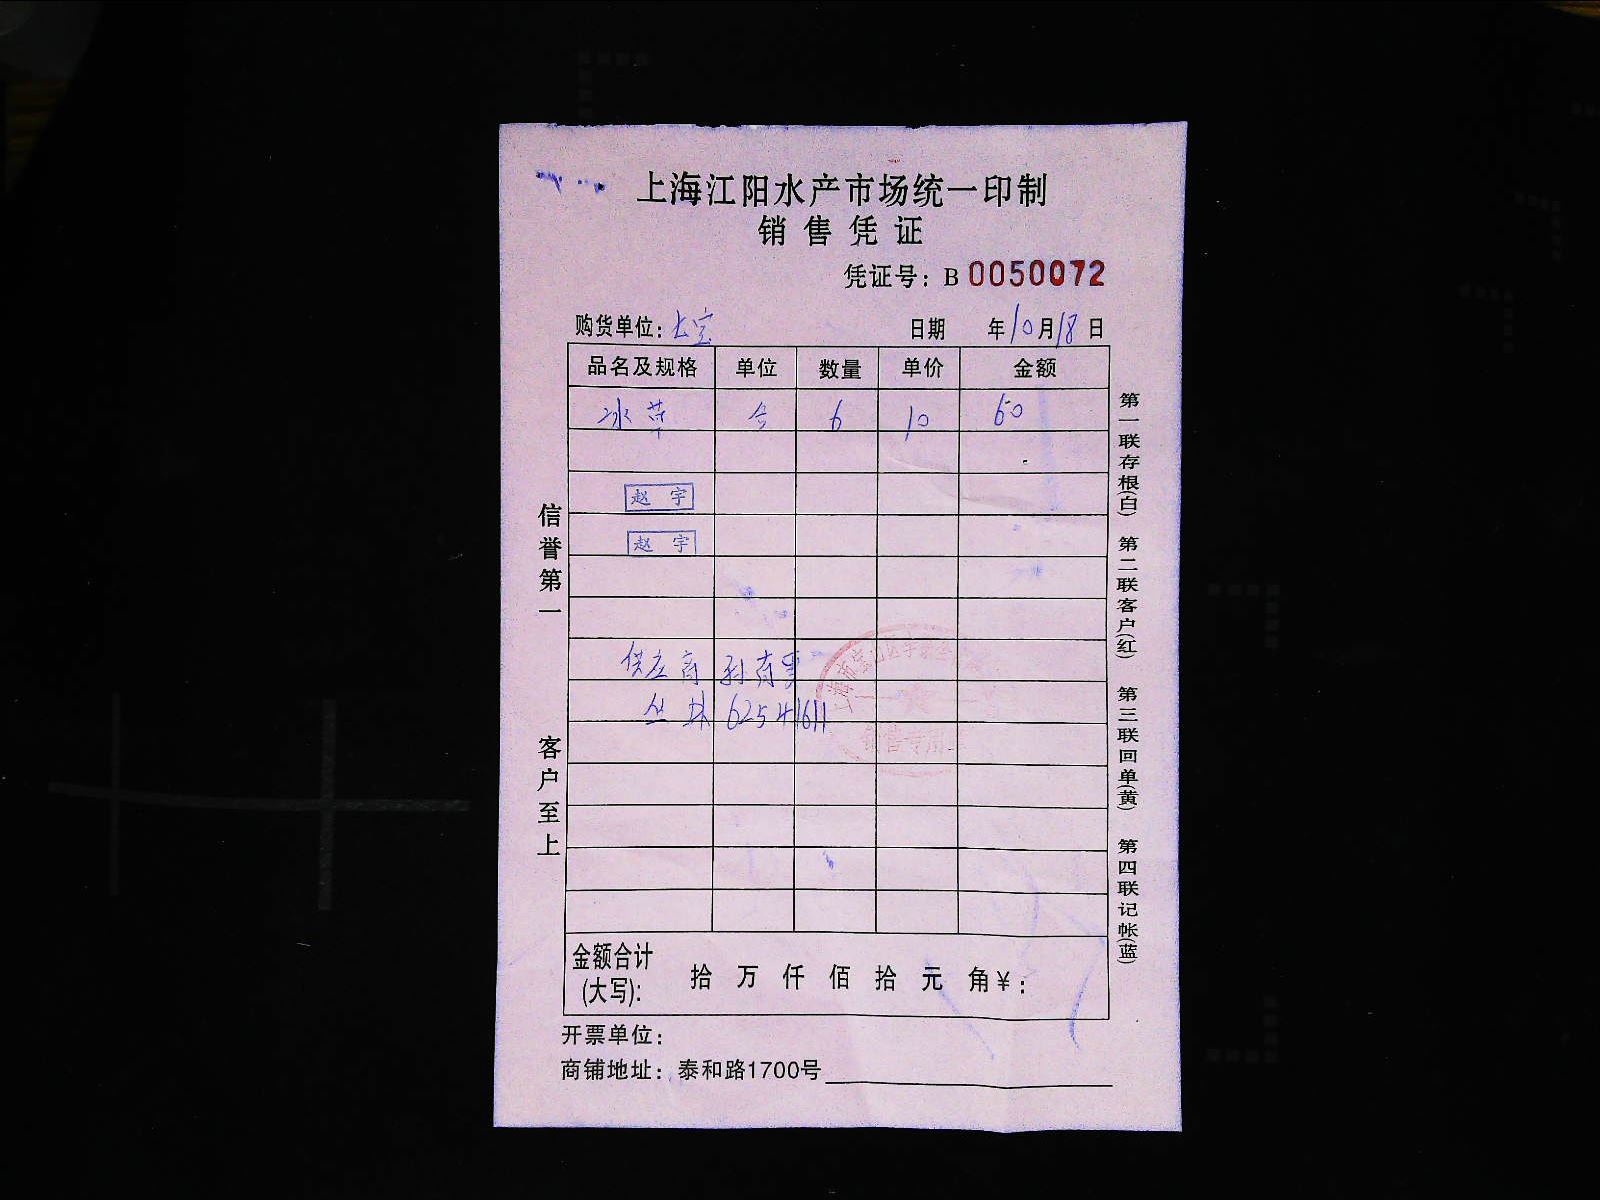 上海江阳水产市场统一印制
销售凭证
凭证号：B 0050072
购货单位：
日期 年10月18日
品名及规格 单位 数量 单价 金额
冰草 合 6 10 60
赵 宇
赵 宇
供应商 孙
丛林 62541611
销售专用
金额合计
(大写)： 拾 万 仟 佰 拾 元 角￥：
开票单位：
商铺地址：泰和路1700号
信誉第一
客户至上
第一联存根(白) 第二联客户(红) 第三联回单(黄) 第四联记帐(蓝)